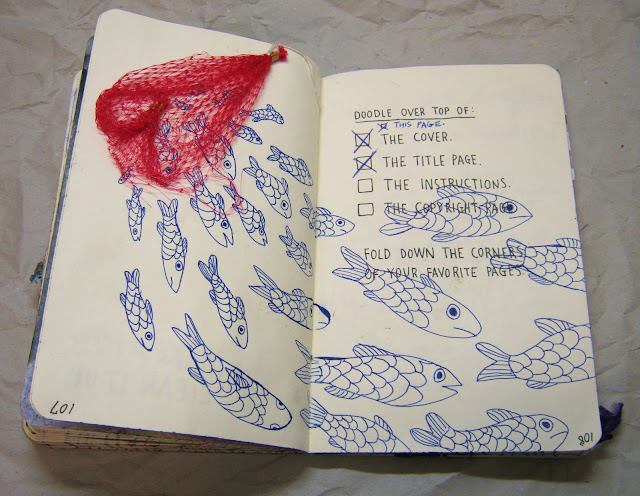 107
DOODLE OVER TOP OF:
THIS PAGE.
THE COVER.
THE TITLE PAGE.
THE INSTRUCTIONS.
THE COPYRIGHT PAGE.
FOLD DOWN THE CORNERS
OF YOUR FAVORITE PAGES.
108